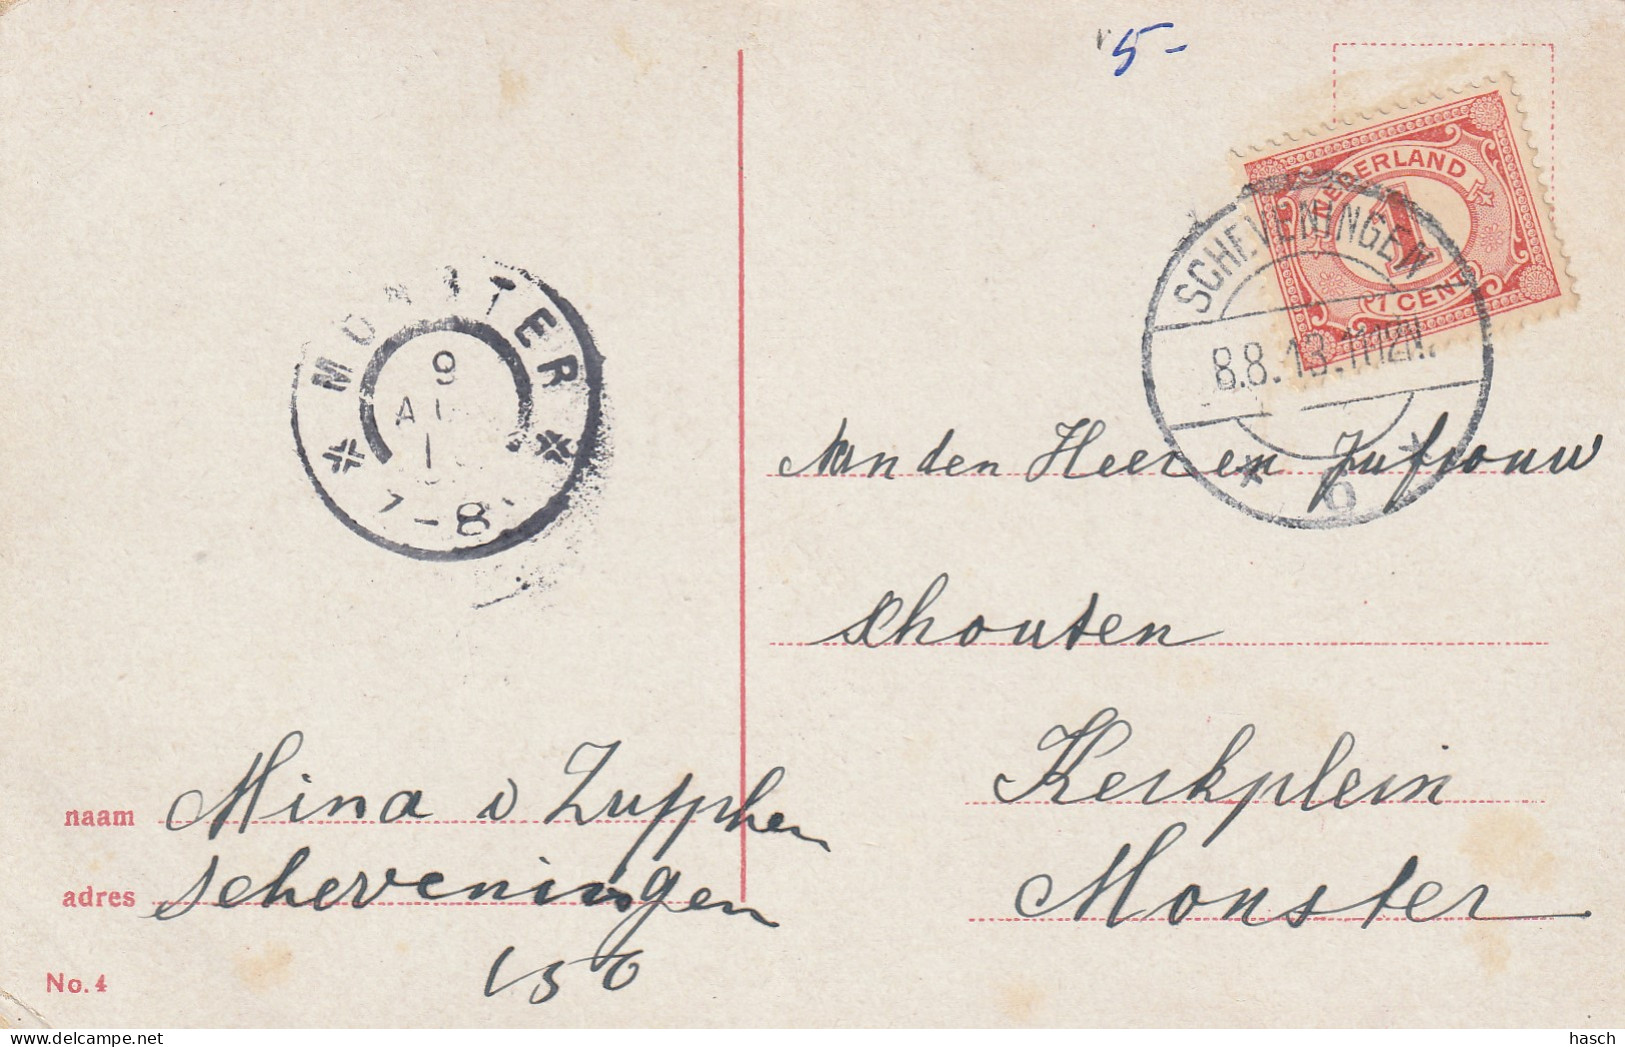 5-
NEDERLAND
1
1 CENT
SCHEVENINGEN
8.8.13.
MONSTER
9
7-8
Aan den Heer en Jufrouw
Schouten
Kerkplein
Monster
naam Mina v Zupphen
adres Scheveningen
156
No. 4
hasch